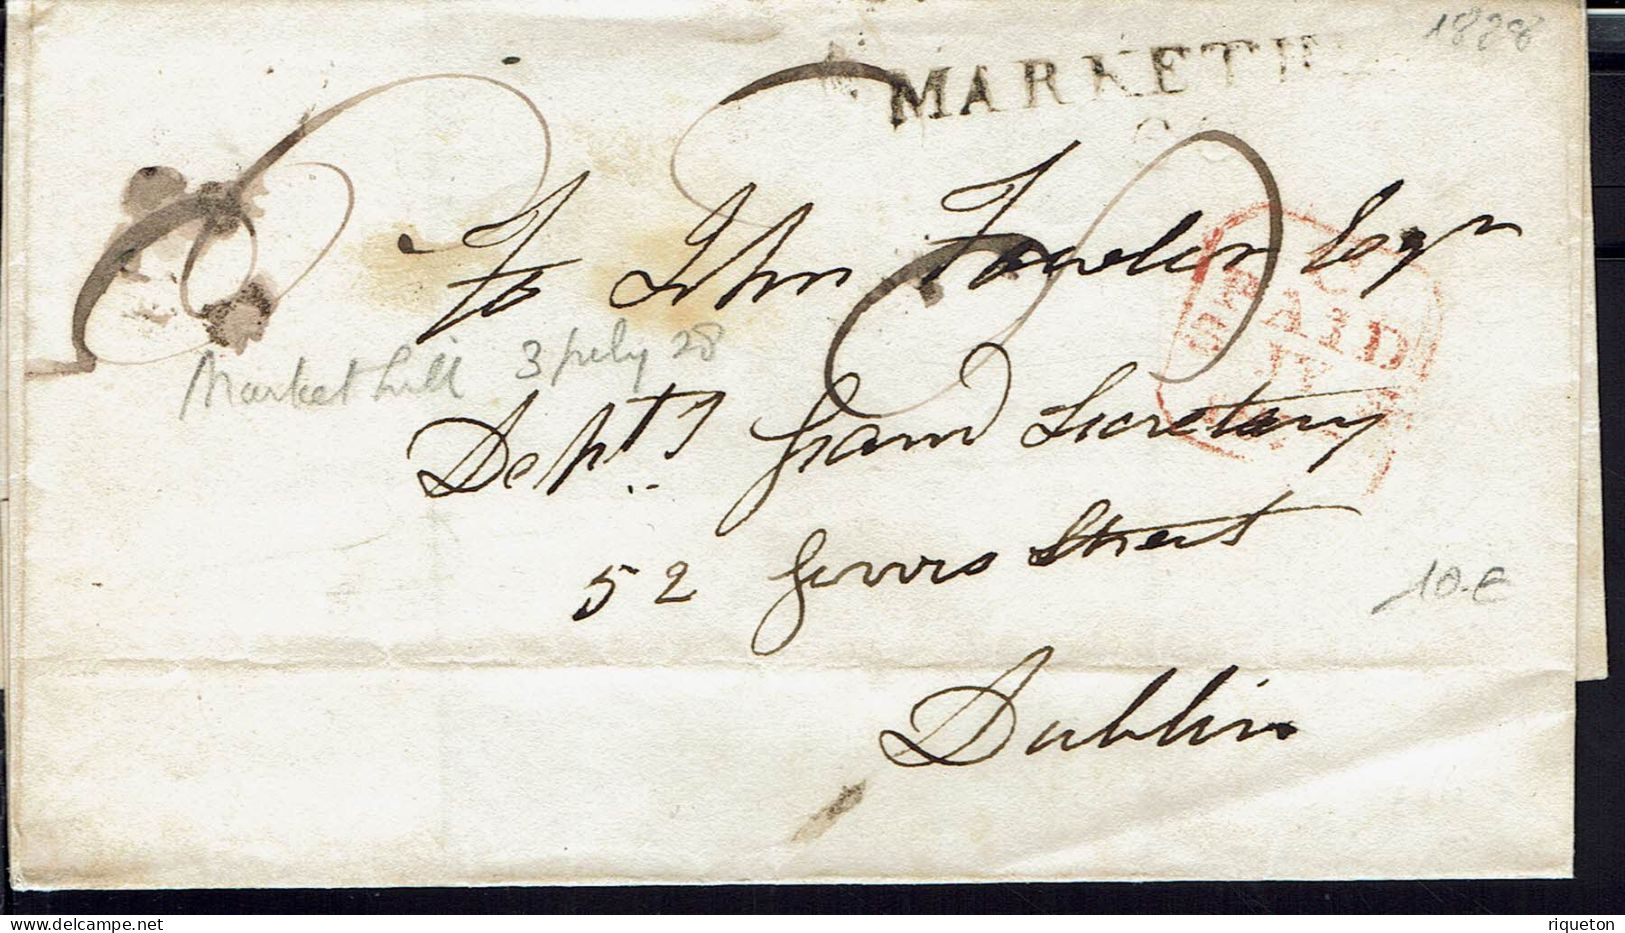 1828
MARKETH
To John Fowler Esqr
PAID
Market hill 3 july 28
Depty Grand Secretary
52 Street
10.€
Dublin
riqueton